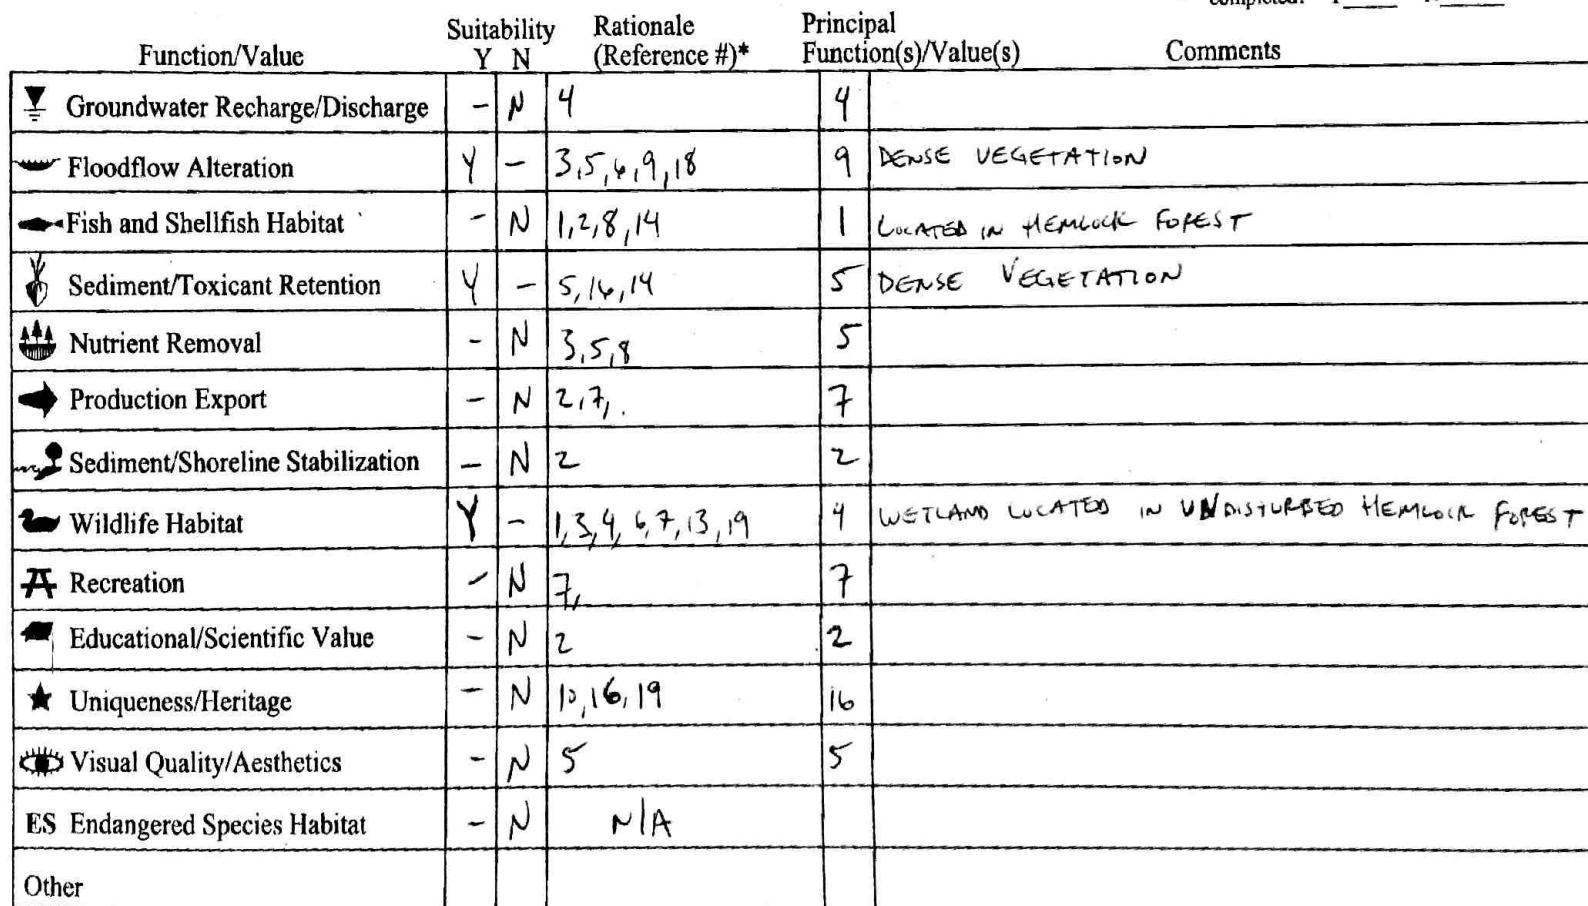 Suitability Rationale Principal
Function/Value Y N (Reference #)* Function(s)/Value(s) Comments
Groundwater Recharge/Discharge - N 4 4
Floodflow Alteration Y - 3,5,6,9,18 9 DENSE VEGETATION
Fish and Shellfish Habitat - N 1,2,8,14 1 LOCATED IN HEMLOCK FOREST
Sediment/Toxicant Retention Y - 5,16,14 5 DENSE VEGETATION
Nutrient Removal - N 3,5,8 5
Production Export - N 2,7, . 7
Sediment/Shoreline Stabilization - N 2 2
Wildlife Habitat Y - 1,3,4,6,7,13,19 4 WETLAND LOCATED IN UNDISTURBED HEMLOCK FOREST
Recreation - N 7, 7
Educational/Scientific Value - N 2 2
Uniqueness/Heritage - N 10,16,19 16
Visual Quality/Aesthetics - N 5 5
ES Endangered Species Habitat - N N/A
Other